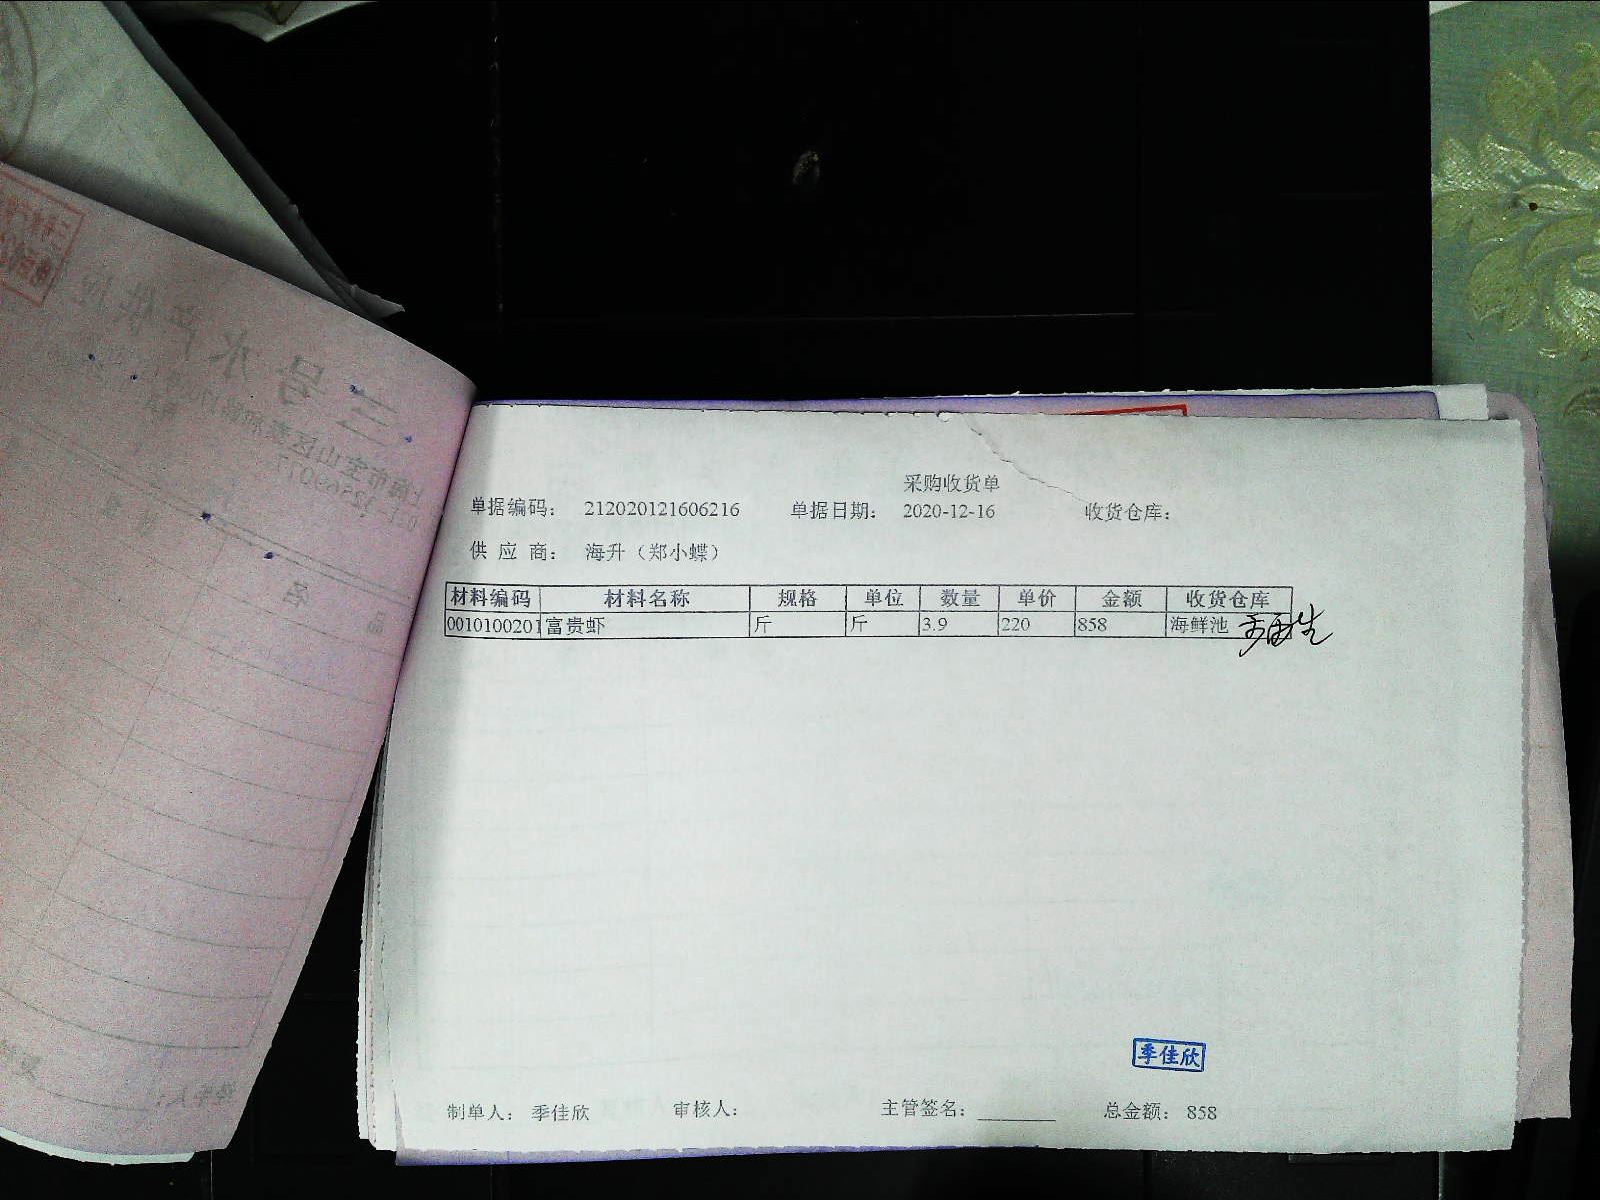 采购收货单
单据编码： 212020121606216 单据日期： 2020-12-16 收货仓库：
供 应 商： 海升（郑小蝶）
材料编码 材料名称 规格 单位 数量 单价 金额 收货仓库
0010100201 富贵虾 斤 斤 3.9 220 858 海鲜池
季佳欣
制单人： 季佳欣 审核人： 主管签名： 总金额： 858
三号水产供应